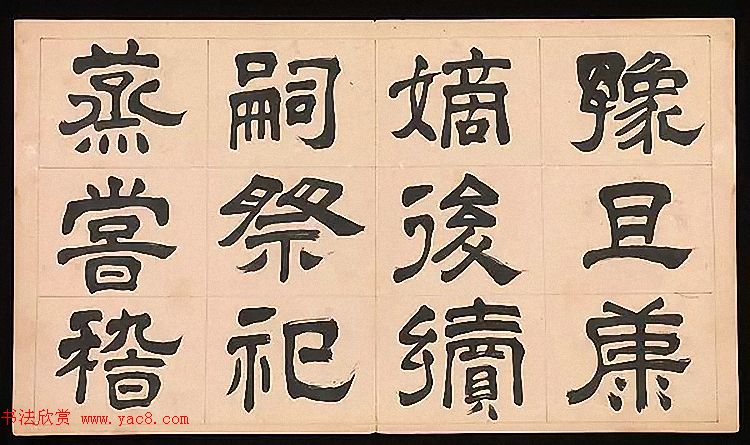 豫且康
嫡後續
嗣祭祀
蒸嘗稽
书法欣赏 www.yac8.com